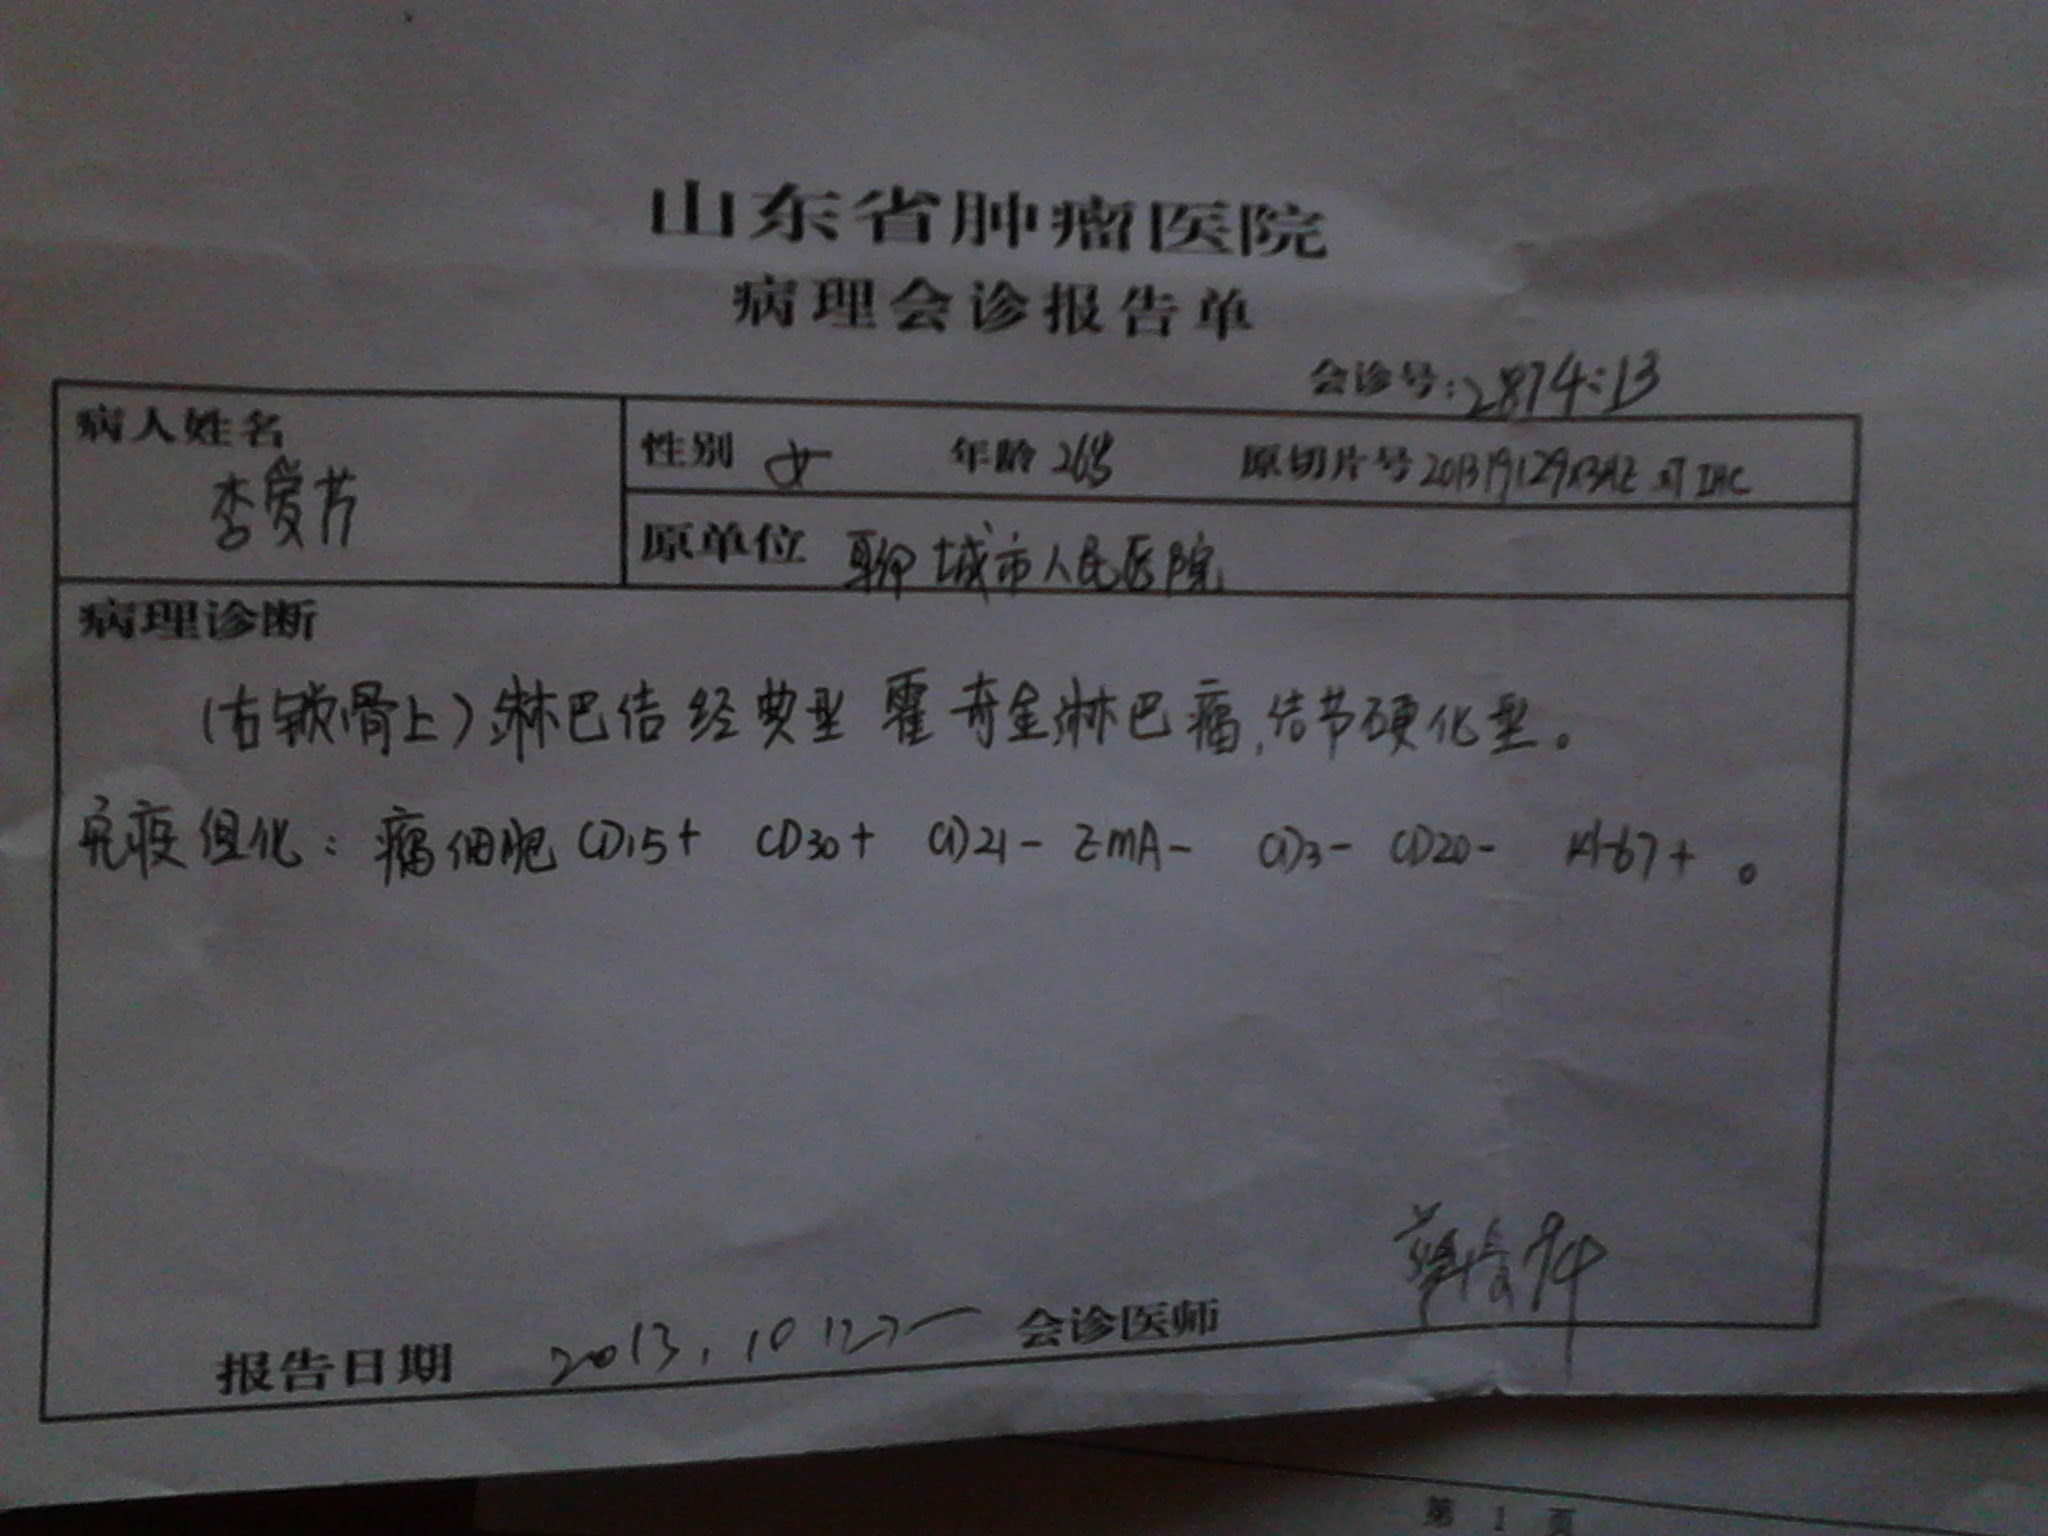 山东省肿瘤医院
病理会诊报告单
会诊号:2874:13
病人姓名
李爱芳
性别 女 年龄 26岁 原切片号 201319129 IHC
原单位 聊城市人民医院
病理诊断
(右锁骨上)淋巴结经典型霍奇金淋巴瘤,结节硬化型。
免疫组化:瘤细胞 CD15+ CD30+ CD21- EMA- CD3- CD20- Ki-67+ 。
报告日期 2013.10 会诊医师
第 1 页